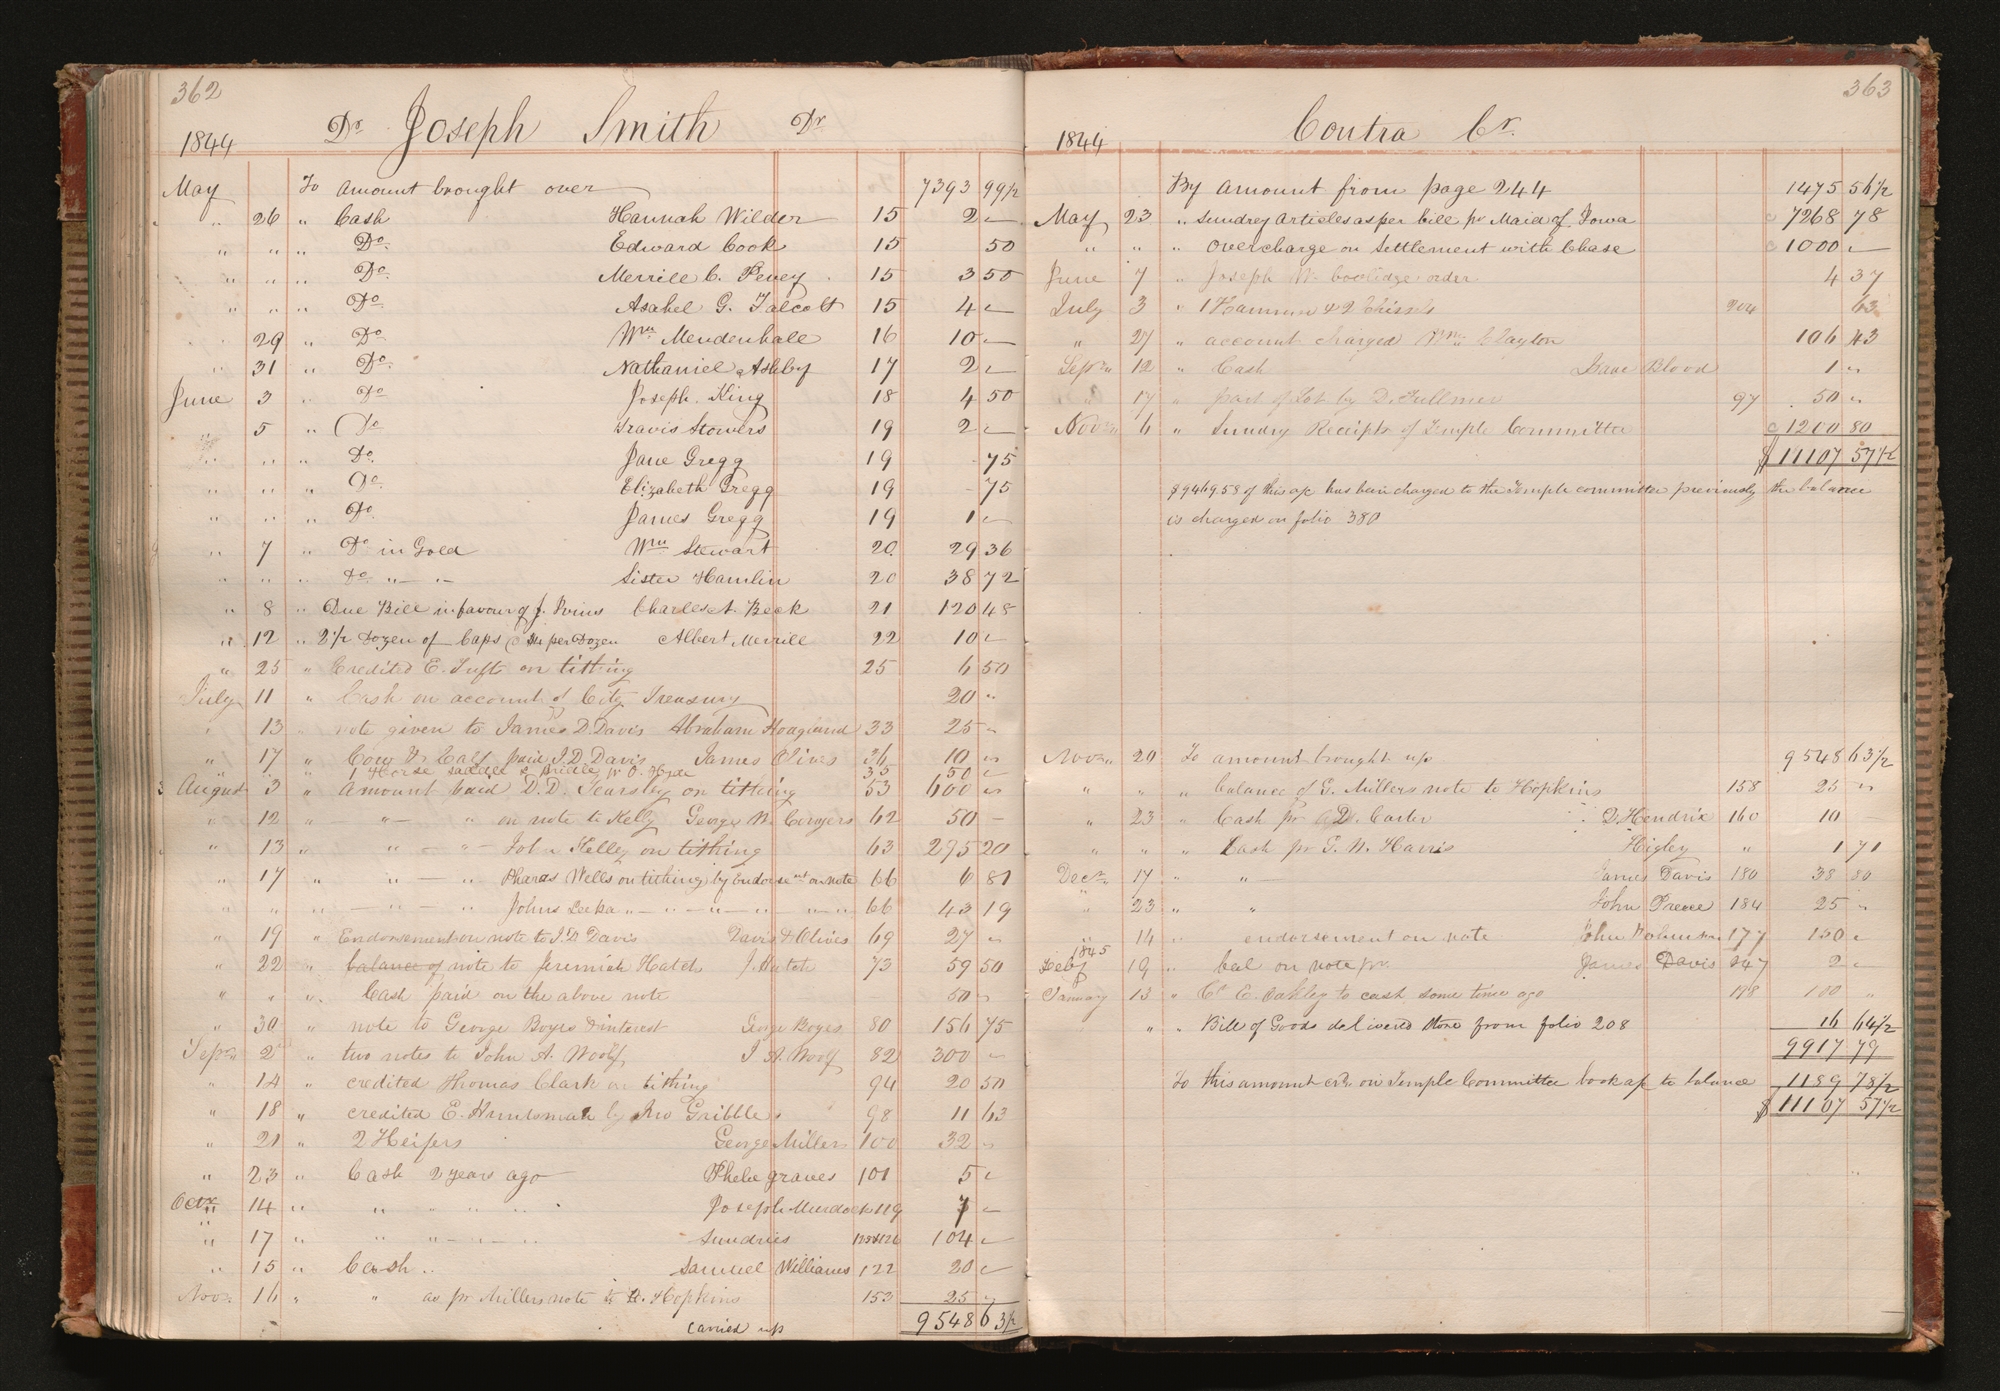 362
1844 Dr. Joseph Smith Dr
May To amount brought over 7393 99 1/2
" 26 " Cash Hannah Wilder 15 2 "
" " " Do. Edward Cook 15 50
" " " Do. Merrill C. Pevey 15 3 50
" " " Do Asahel G. Talcott 15 4 "
" 29 " Do. Wm. Mendenhall 16 10 "
" 31 " Do. Nathaniel Ashby 17 2 "
June 3 " Do Joseph King 18 4 50
" 5 " Do Travis Stowers 19 2 "
" " " Do. Jane Gregg 19 75
" " " Do. Elizabeth Gregg 19 75
" " " Do James Gregg 19 1 "
" 7 " Do in Gold Wm Stewart 20 29 36
" " " Do " — " Sister Hamlin 20 38 72
" 8 " Due Bill in favour of J. Ivins Charles A. Beck 21 120 48
" 12 " 2 1/2 Dozen of Caps per Dozen Albert Merrill 22 10 "
" 25 " Credited E. Tufts on tithing 25 6 50
July 11 " Cash on account of City Treasury 20 "
" 13 " note given to James D. Davis Abraham Hoagland 33 25 "
" 17 " Cow & Calf paid J. D. Davis James Olives 36 10 "
" " " 1 Horse saddle & Bridle pr O. Hyde 35 50 "
August 3 " Amount paid D. D. Yearsley on tithing 53 600 "
" 12 " " — " on note to Kelly George W. Crouse 62 50 —
" 13 " " — " — John Kelley on tithing 63 295 20
" 17 " " — " Phares Wells on tithing by Endorsemt on note 66 6 81
" " " — " — " Johns " — " — " — " " — " 66 43 19
" 19 " Endorsement on note to J. D Davis Davis & Olives 69 27 "
" 22 " balance of note to Jeremiah Hatch J. Hatch 73 59 50
" " " Cash paid on the above note 50 "
" 30 " note to George Boyes & interest George Boyes 80 156 75
Sepr 2 " two notes to John A. Woolf J A. Woolf 82 300 "
" 14 " credited Thomas Clark on tithing 94 20 50
" 18 " credited E. Huntsman by Jno Gribble 98 11 63
" 21 " 2 Heifers George Miller 100 32 "
" 23 " Cash 2 years ago Phebe graves 101 5 "
Octr 14 " " " " " Joseph Murdock 119 7 "
" 17 " " " — " — " Sundries 104 "
" 15 " Cash " Samuel Williams 122 20 "
Novr. 16 " " as pr Millers note to A. Hopkins 153 25 "
carried up 9548 63 1/2
363
1844 Contra Cr.
By amount from page 244 1475 56 1/2
May 23 " Sundry articles as per bill pr Maid of Iowa 7268 78
" " " overcharge on Settlement with Chase 1000 "
June 7 " Joseph W. Coolidge order 4 37
July 3 " 1 Hammer & 2 Chissels 204 63
" 27 " account charged Wm. Clayton 106 43
Sepr 12 " Cash Isaac Blood 1 "
" 17 " part of Lot by D. Fullmer 97 50 "
Novr 6 " Sundry Receipts of Temple Committee 1200 80
$ 11107 57 1/2
$9469.58 of this a/c has been charged to the Temple committee previously the balance
is charged on folio 380
Novr. 20 To amount brought up 9548 63 1/2
" " " balance of G. Millers note to Hopkins 158 25 "
" 23 " Cash pr D. Carter D Hendrix 160 10 —
" " " Cash pr G. W. Harris Higley " 1 71
Decr 17 " " — James Davis 180 38 80
" 23 " " John Preece 184 25 "
" 14 " endorsement on note John 177 150 "
1845
Feby 19 " bal on note pr. James Davis 247 2 "
January 13 " Cr E. Oakley to cash some time ago 198 100 "
" " Bill of Goods delivered Store from folio 208 16 64 1/2
9917 79
To this amount crd. on Temple Committee book a/c to balance 1189 78 1/2
$ 11107 57 1/2